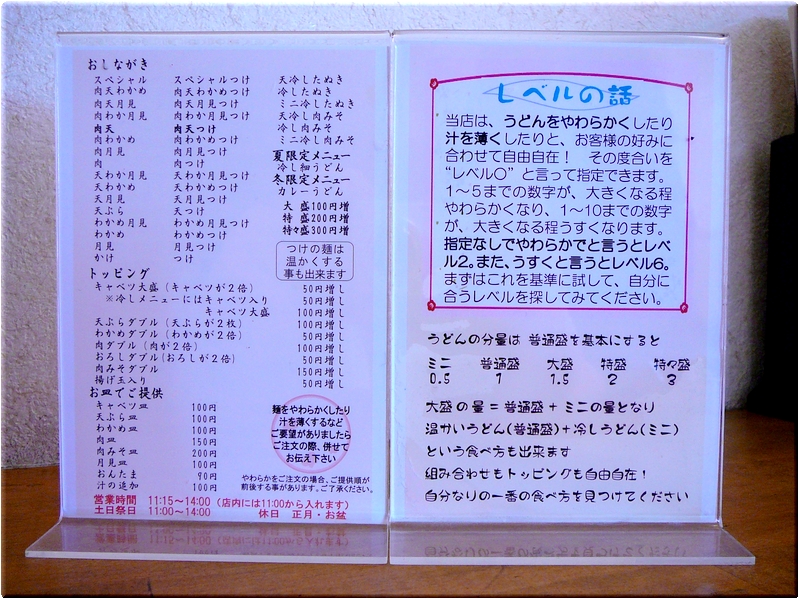 おしながき
スペシャル スペシャルつけ 天冷したぬき
肉天わかめ 肉天わかめつけ 冷したぬき
肉天月見 肉天月見つけ ミニ冷したぬき
肉わか月見 肉わか月見つけ 天冷し肉みそ
肉天 肉天つけ 冷し肉みそ
肉わかめ 肉わかめつけ ミニ冷し肉みそ
肉月見 肉月見つけ 夏限定メニュー
肉 肉つけ 冷し細うどん
天わか月見 天わか月見つけ 冬限定メニュー
天わかめ 天わかめつけ カレーうどん
天月見 天月見つけ
天ぷら 天つけ
わか月見 わかめ月見つけ
わかめ わかめつけ
月見 月見つけ
かけ つけ
大盛100円増
特盛200円増
特々盛300円増
つけの麺は
温かくする
事も出来ます
トッピング
キャベツ大盛(キャベツが2倍) 50円増し
※冷しメニューにはキャベツ入り 50円増し
キャベツ大盛 100円増し
天ぷらダブル(天ぷらが2枚) 100円増し
わかめダブル(わかめが2倍) 50円増し
肉ダブル(肉が2倍) 100円増し
おろしダブル(おろしが2倍) 50円増し
肉みそダブル 150円増し
揚げ玉入り 50円増し
お皿でご提供
キャベツ皿 100円
天ぷら皿 100円
わかめ皿 100円
肉皿 150円
肉みそ皿 200円
月見皿 100円
おんたま 90円
汁の追加 100円
麺をやわらかくしたり
汁を薄くするなど
ご要望がありましたら
ご注文の際、併せて
お伝え下さい
やわらかをご注文の場合、ご提供順が
前後する事があります。ご了承ください。
営業時間 11:15~14:00(店内には11:00から入れます)
土日祭日 11:00~14:00 休日 正月・お盆
レベルの話
当店は、うどんをやわらかくしたり
汁を薄くしたりと、お客様の好みに
合わせて自由自在! その度合いを
“レベル○”と言って指定できます。
1~5までの数字が、大きくなる程
やわらかくなり、1~10までの数字
が、大きくなる程うすくなります。
指定なしでやわらかでと言うとレベ
ル2。また、うすくと言うとレベル6。
まずはこれを基準に試して、自分に
合うレベルを探してみてください。
うどんの分量は 普通盛を基本にすると
ミニ 普通盛 大盛 特盛 特々盛
0.5 1 1.5 2 3
大盛の量=普通盛+ミニの量となり
温かいうどん(普通盛)+冷しうどん(ミニ)
という食べ方も出来ます
組み合わせもトッピングも自由自在!
自分なりの一番の食べ方を見つけてください